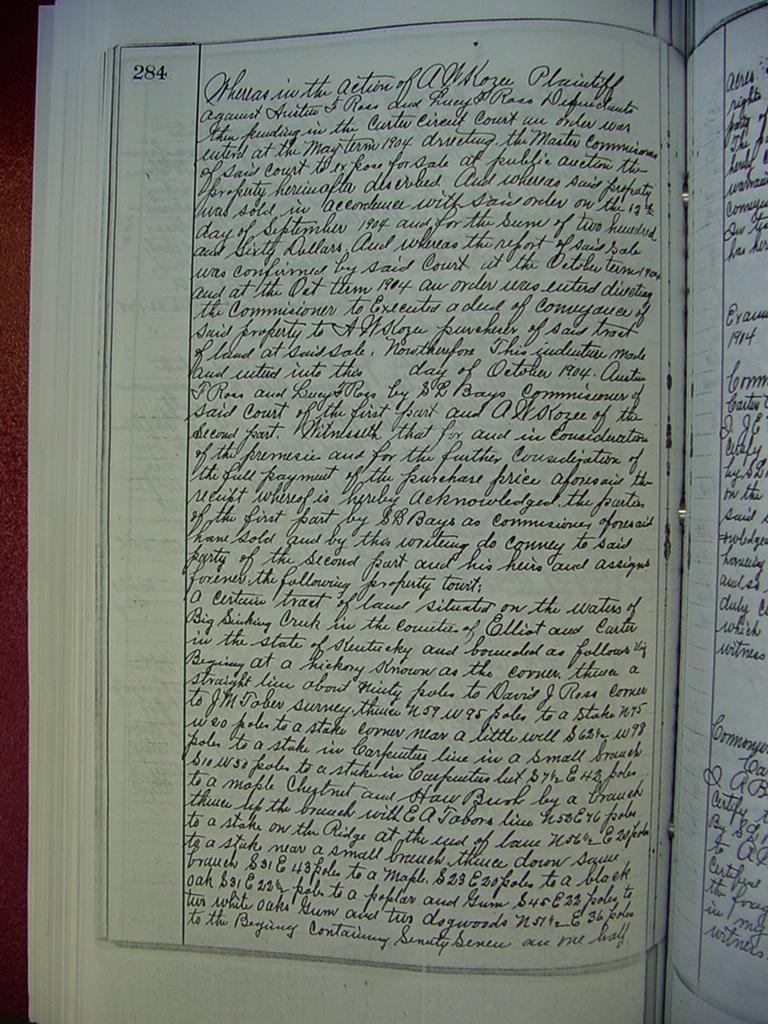 284
Whereas in the action of A W Kozee Plaintiff
against Austin F Ross and Lucy F Ross Defendants
then pending in the Carter Circuit Court an order was
enterd at the May term 1904 directing the Master Commissioner
of said Court to expose for sale at public auction the
property hereinafter described. And whereas said property
was sold in accordance with said order on the 12th
day of September 1904 and for the sum of two hundred
and sixty Dollars. And whereas the report of said sale
was confirmed by said Court at the October term 1904
and at the Oct term 1904 an order was enterd directing
the Commissioner to Executed a deed of conveyance of
said property to A W Kozee purchaser of said tract
of land at said sale. Now therefore This indenture made
and enterd into this day of October 1904. Austin
F Ross and Lucy F Ross by S B Bays Commissioner of
said Court of the first part and A W Kozee of the
second part. Witnesseth that for and in consideration
of the premesis and for the further consideration of
the full payment of the purchase price aforesaid the
receipt whereof is hereby acknowledged. the parties
of the first part by S B Bays as commisioner aforesaid
have sold and by this writing do convey to said
party of the second part and his heirs and assigns
forever the following property towit:
a certain tract of land situated on the waters of
Big Sinking Creek in the counties of Elliot and Carter
in the state of Kentucky and bounded as follows viz
Begining at a hickory known as the corner, thence a
straight line about ninty poles to David J Ross corner
to J M Tabor survey thence N 59 W 95 poles to a Stake N 75
W 20 poles to a stake corner near a little well S 62½ W 98
poles to a stake in Carpenters line in a small branch
S 10 W 50 poles to a stake in Carpenters S 7½ E 43 poles
to a maple Chestnut and Haw Bush by a branch
thence up the branch with E A Tabors line N 53 E 76 poles
to a stake on the Ridge at the end of lane N 56½ E 20 poles
to a stake near a small branch thence down same
branch S 31 E 43 poles to a Maple. S 23 E 20 poles to a black
oak S 31 E 22½ poles to a poplar and Gum S 45 E 22 poles to
two white oaks Gum and two dogwoods N 51½ E 36 poles
to the Begining Containing Senuty Seven an one half